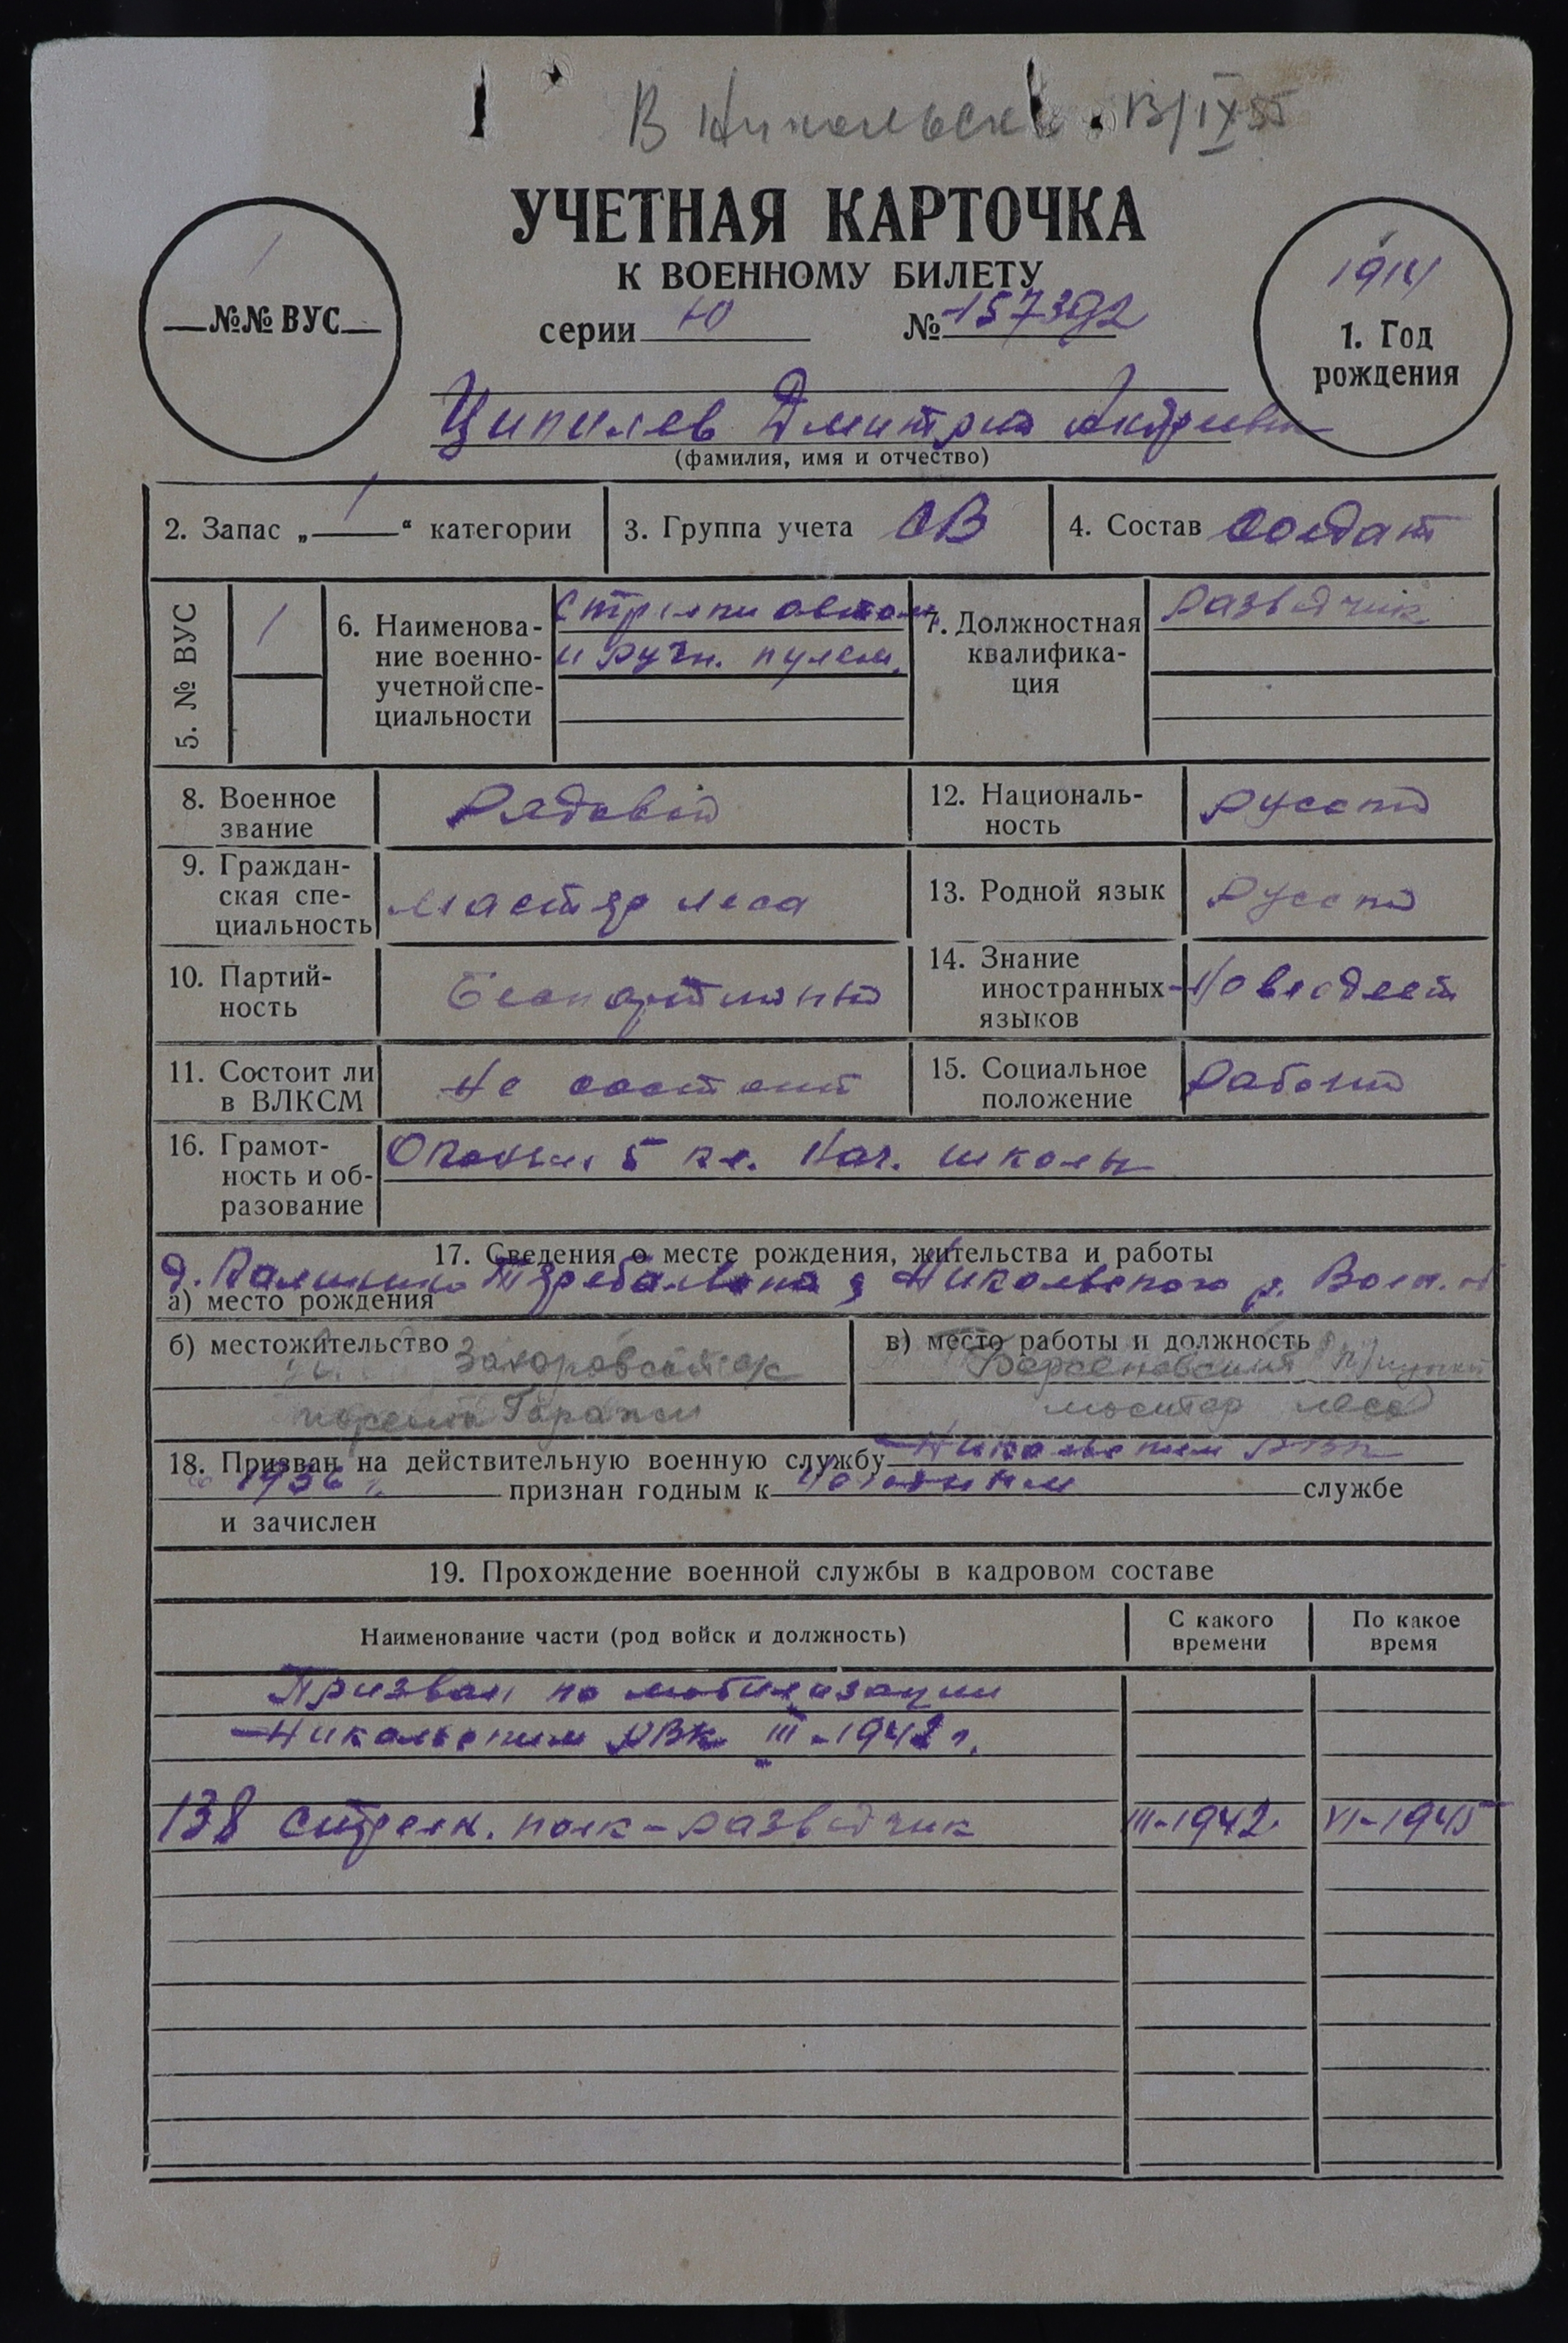 В Никольск 13/IX 55
УЧЕТНАЯ КАРТОЧКА
К ВОЕННОМУ БИЛЕТУ
серии Ю № 157392
№№ ВУС
1
1914
1. Год рождения
Ципилев Дмитрий Андреевич
(фамилия, имя и отчество)
2. Запас „ 1 “ категории
3. Группа учета СВ
4. Состав солдат
5. № ВУС 1
6. Наименова-
ние военно-
учетной спе-
циальности
Стрелки автом.
и ручн. пулем.
7. Должностная
квалифика-
ция
разведчик
8. Военное
звание
Рядовой
12. Националь-
ность
Русский
9. Граждан-
ская спе-
циальность
мастер леса
13. Родной язык
Русский
10. Партий-
ность
Беспартийный
14. Знание
иностранных
языков
Не владеет
11. Состоит ли
в ВЛКСМ
Не состоит
15. Социальное
положение
Рабочий
16. Грамот-
ность и об-
разование
5 кл. Нач. школы
17. Сведения о месте рождения, жительства и работы
д. Калинино Никольского р. Волог. об
а) место рождения
б) местожительство Захаровский с/с
в) место работы и должность
мастер леса
18. Призван на действительную военную службу Никольским РВК
в 1936 г. признан годным к службе
и зачислен
19. Прохождение военной службы в кадровом составе
Наименование части (род войск и должность)
С какого
времени
По какое
время
Призван по мобилизации
Никольским РВК III-1942 г.
138 стрелк. полк - разведчик III-1942. VI-1945